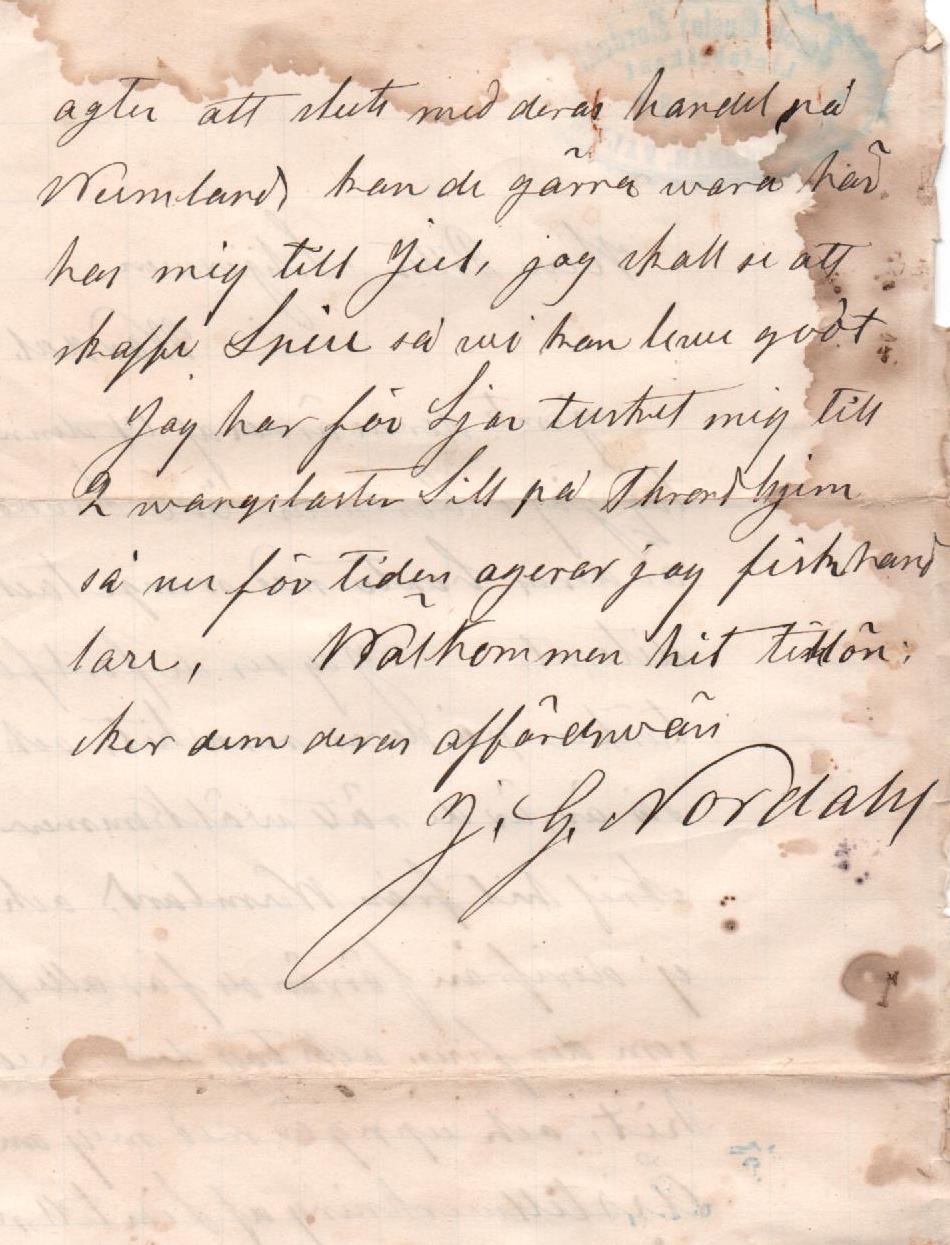 agter att slute med deras handel på
Wermland, kan de gärna wara här
hos mig till Jul, jag skall se att
skaffe Spise så wi kan leve godt
Jag har för Sjar tusket mig till
2 wangslaster Sill på Throndhjem
så nu för tiden agerar jag fiskhand
lare, Wälkommen hit tillön:
sker dem deras affärdswän
J. G. Nordahl